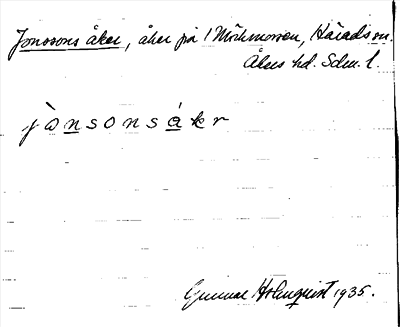 Jonssons åker, åker på Mörkmossen, Härads sn.
Åkers hd. Sdm. l.
jònsonsákr
Gunnar Holmquist 1935.